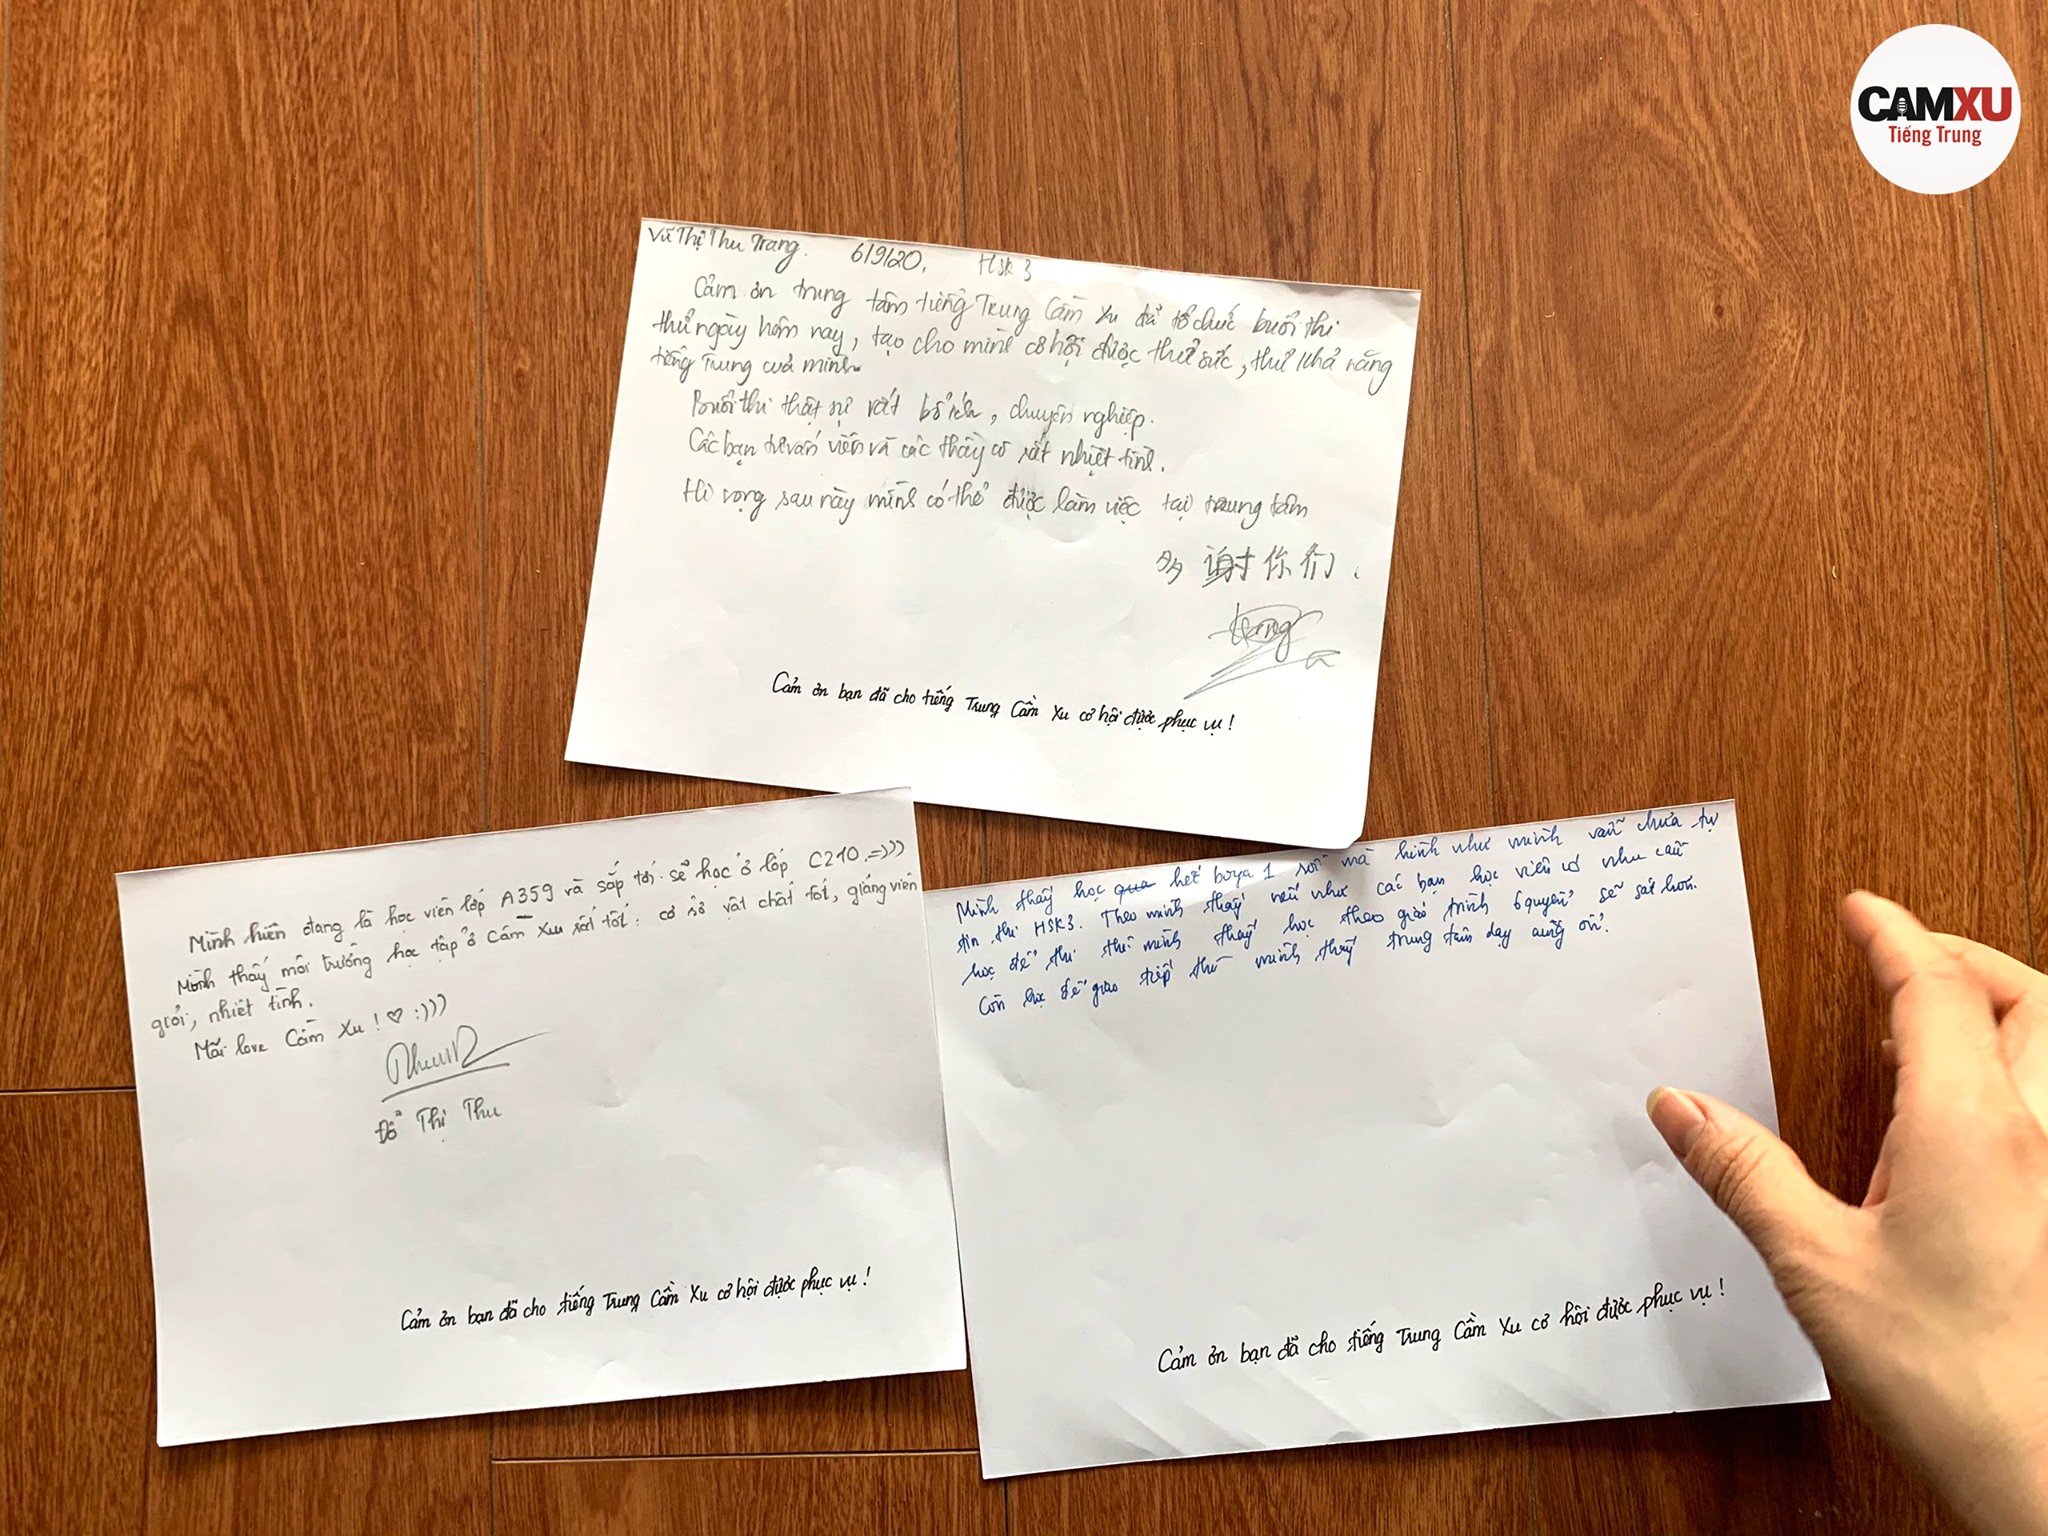 CAMXU
Tiếng Trung
Vũ Thị Thu Trang. 6/9/20. Hsk 3
Cảm ơn trung tâm tiếng Trung Cầm Xu đã tổ chức buổi thi
thử ngày hôm nay, tạo cho mình cơ hội được thử sức, thử khả năng
tiếng Trung của mình
Buổi thi thật sự rất bổ ích, chuyên nghiệp.
Các bạn tư vấn viên và các thầy cô rất nhiệt tình.
Hi vọng sau này mình có thể được làm việc tại trung tâm
多 谢 你 们.
Trang
Cảm ơn bạn đã cho tiếng Trung Cầm Xu cơ hội được phục vụ!
Mình hiện đang là học viên lớp A359 và sắp tới sẽ học ở lớp C210.=)))
Mình thấy môi trường học tập ở Cầm Xu rất tốt: cơ sở vật chất tốt, giảng viên
giỏi, nhiệt tình.
Mãi love Cầm Xu! ♡ :)))
Đỗ Thị Thu
Cảm ơn bạn đã cho tiếng Trung Cầm Xu cơ hội được phục vụ!
Mình thấy học qua hết boya 1 rồi mà hình như mình vẫn chưa tự
tin thi HSK3. Theo mình thấy nếu như các bạn học viên có nhu cầu
học để thi thì mình thấy học theo giáo trình 6 quyển sẽ sát hơn.
Còn học để giao tiếp thì mình thấy trung tâm dạy cũng ổn.
Cảm ơn bạn đã cho tiếng Trung Cầm Xu cơ hội được phục vụ!